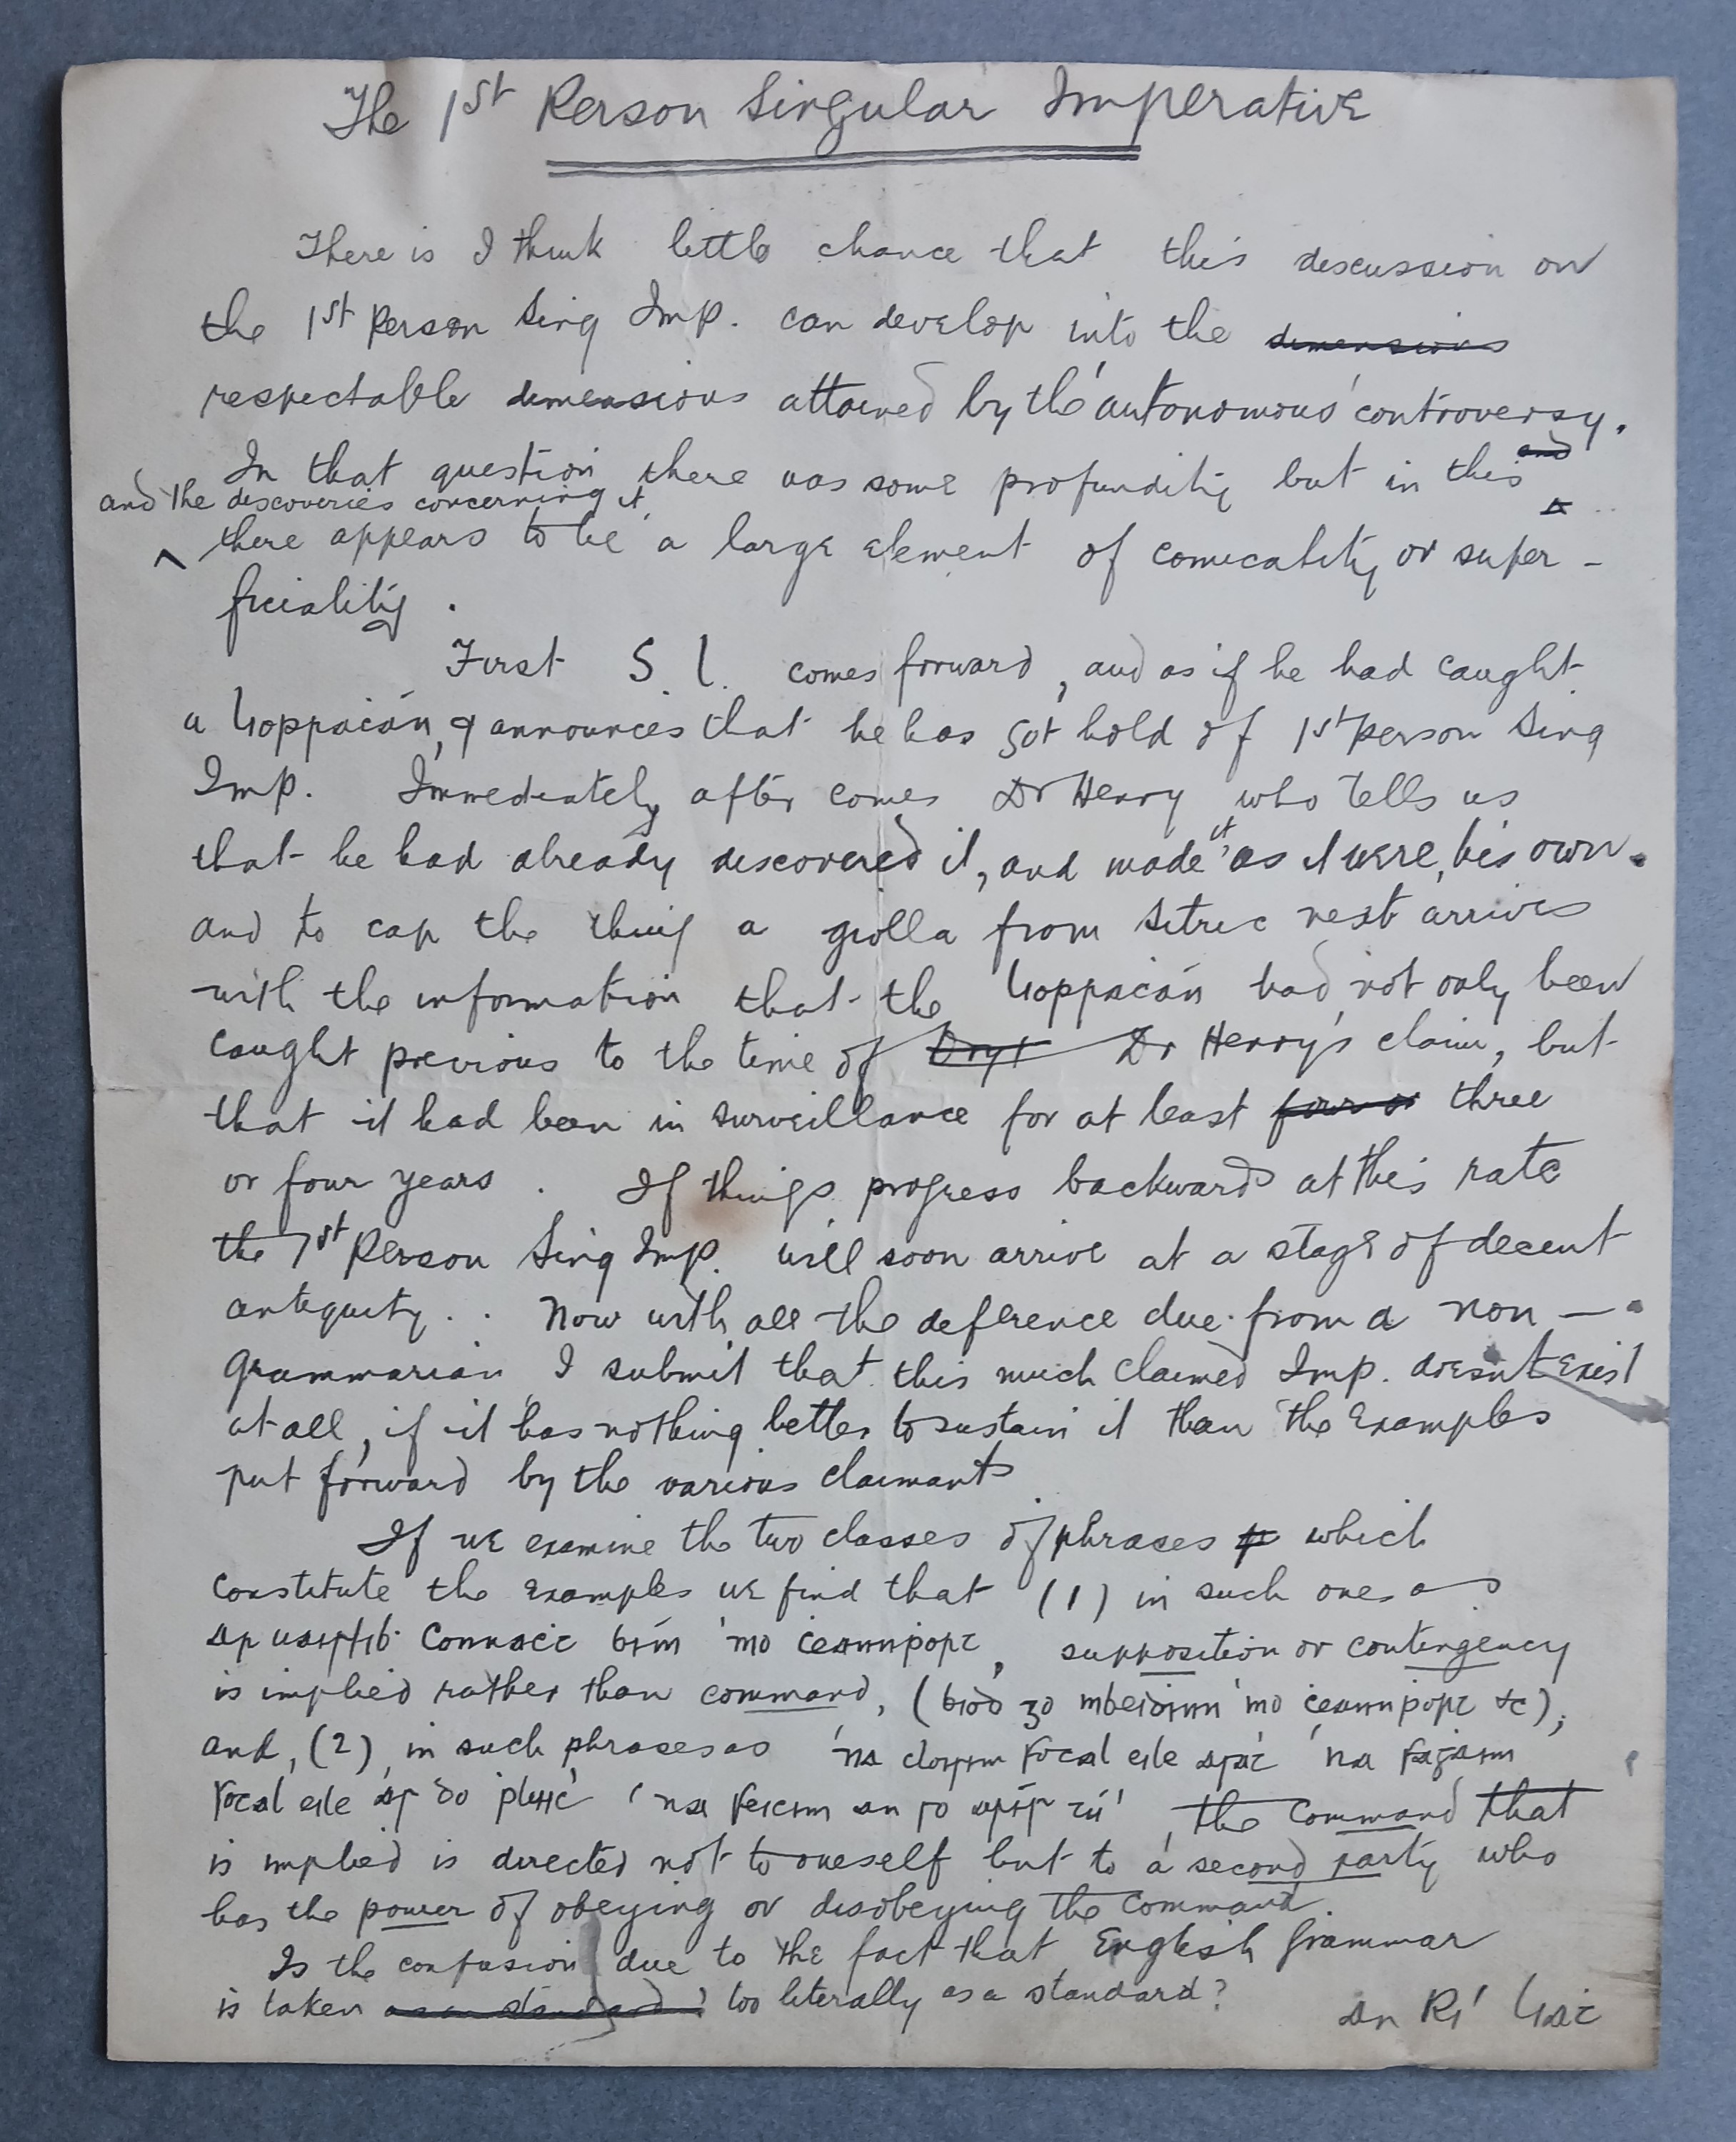 The 1st Person Singular Imperative
There is I think little chance that this discussion on
the 1st Person Sing Imp. can develop into the dimensions
respectable dimensions attained by the 'autonomous' controversy.
In that question there was some profundity but in this and
and the discoveries concerning it
^ there appears to be a large element of comicality or super-
ficiality.
First S. L. comes forward, and as if he had caught
a lioppracán, & announces that he has got hold of 1st person Sing
Imp. Immediately after comes Dr Henry who tells us
that he had already discovered it, and made it, as it were, his own.
and to cap the thing a giolla from Sitric next arrives
with the information that the lioppracán had not only been
caught previous to the time of Dr Henry's claim, but
that it had been in surveillance for at least four or three
or four years. If things progress backwards at this rate
the 1st Person Sing Imp. will soon arrive at a stage of decent
antiquity.. Now with all the deference due from a non-
grammarian I submit that this much claimed Imp. doesn't exist
at all, if it has nothing better to sustain it than the examples
put forward by the various claimants
If we examine the two classes of phrases p which
constitute the examples we find that (1) in such ones as
ar Connaċt bím 'mo ċeannṗort, supposition or contingency
is implied rather than command, (bioḋ go mbeiḋinn 'mo ċeannṗort &c);
and, (2), in such phrases as 'ná cloisim focal eile asat' 'ná faġaim
focal eile as do ṗluic' 'ná feicim an so arís tú', the command that
is implied is directed not to oneself but to a second party who
has the power of obeying or disobeying the command.
Is the confusion due to the fact that English Grammar
is taken as a standard? too literally as a standard?
An Rí Liaṫ